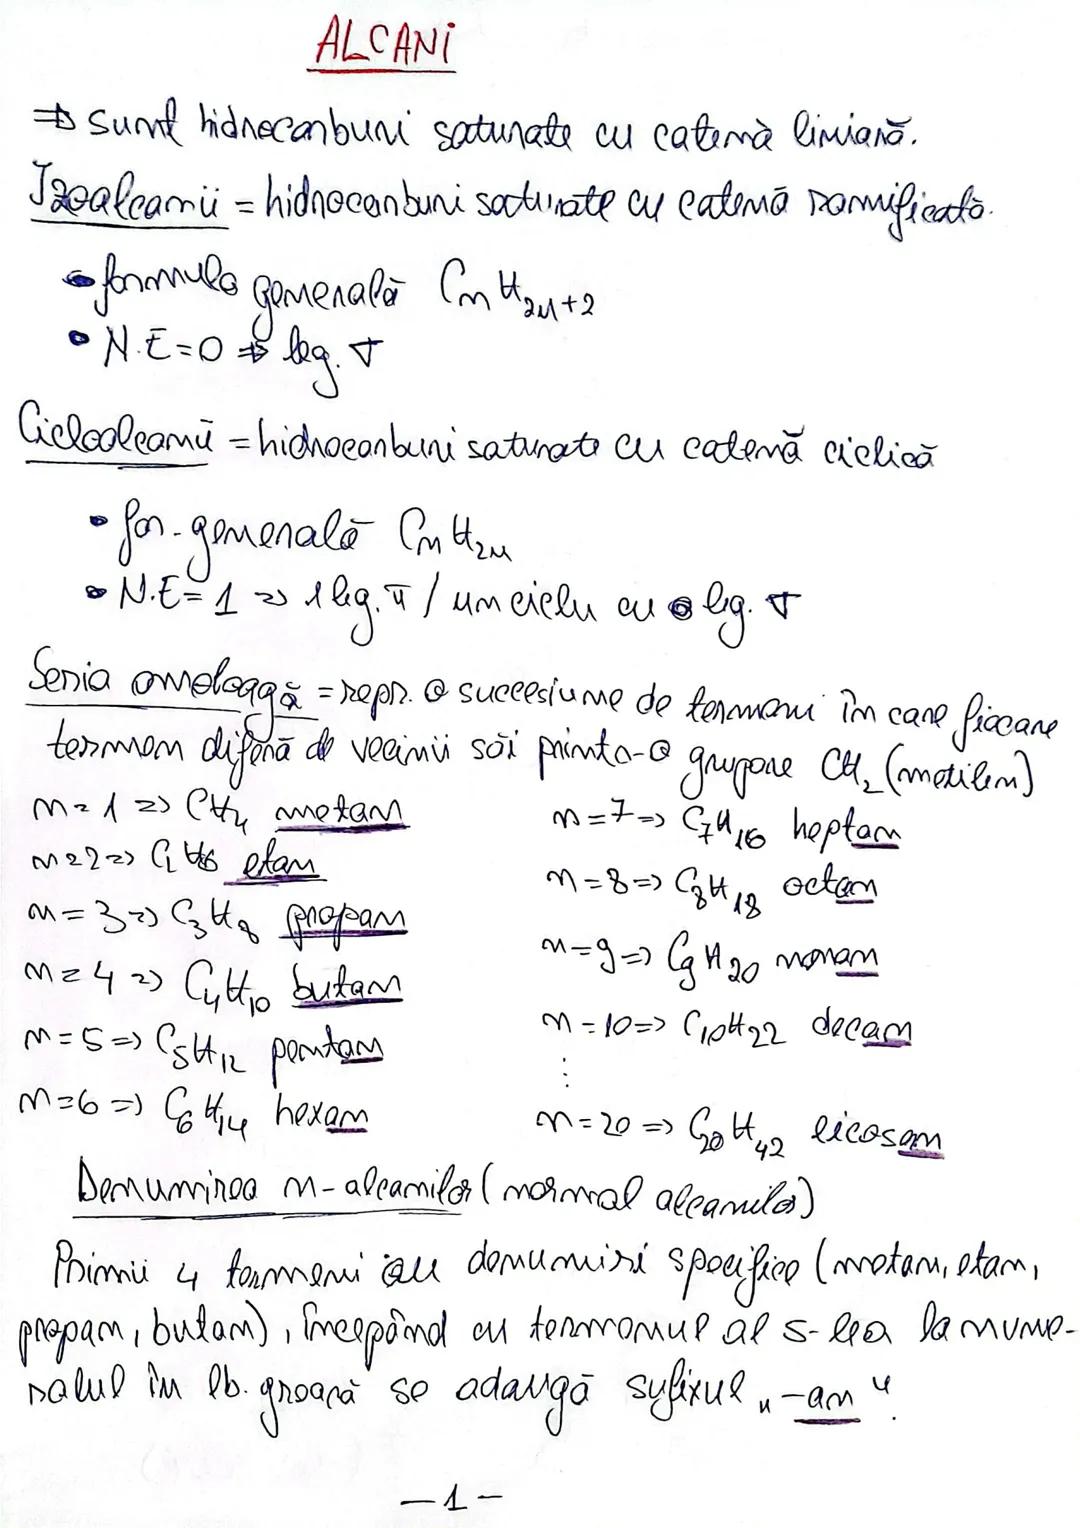 ALCANI
⇒ sunt hidrocarburi saturate cu catenă liniară.
Izoalcanii = hidrocarburi saturate cu catenă ramificată.
• formula generală CnH2n+2
• N.E=0 ⇒ leg. σ
Cicloalcanii = hidrocarburi saturate cu catenă ciclică
• for. generală CnH2n
• N.E=1 => 1 leg. π / un ciclu cu leg. σ
Seria omoloagă = repr. o succesiune de termeni în care fiecare
termen diferă de vecinii săi printr-o grupare CH2 (metilen)
n=1 => CH4 metan
n=2 => C2H6 etan
n=3 => C3H8 propan
n=4 => C4H10 butan
n=5 => C5H12 pentan
n=6 => C6H14 hexan
n=7 => C7H16 heptan
n=8 => C8H18 octan
n=9 => C9H20 nonan
n=10 => C10H22 decan
⋮
n=20 => C20H42 eicosan
Denumirea n-alcanilor (normal alcanilor)
Primii 4 termeni au denumiri specifice (metan, etan,
propan, butan), începând cu termenul al 5-lea la nume-
ralul în lb. greacă se adaugă sufixul „-an".
-1-